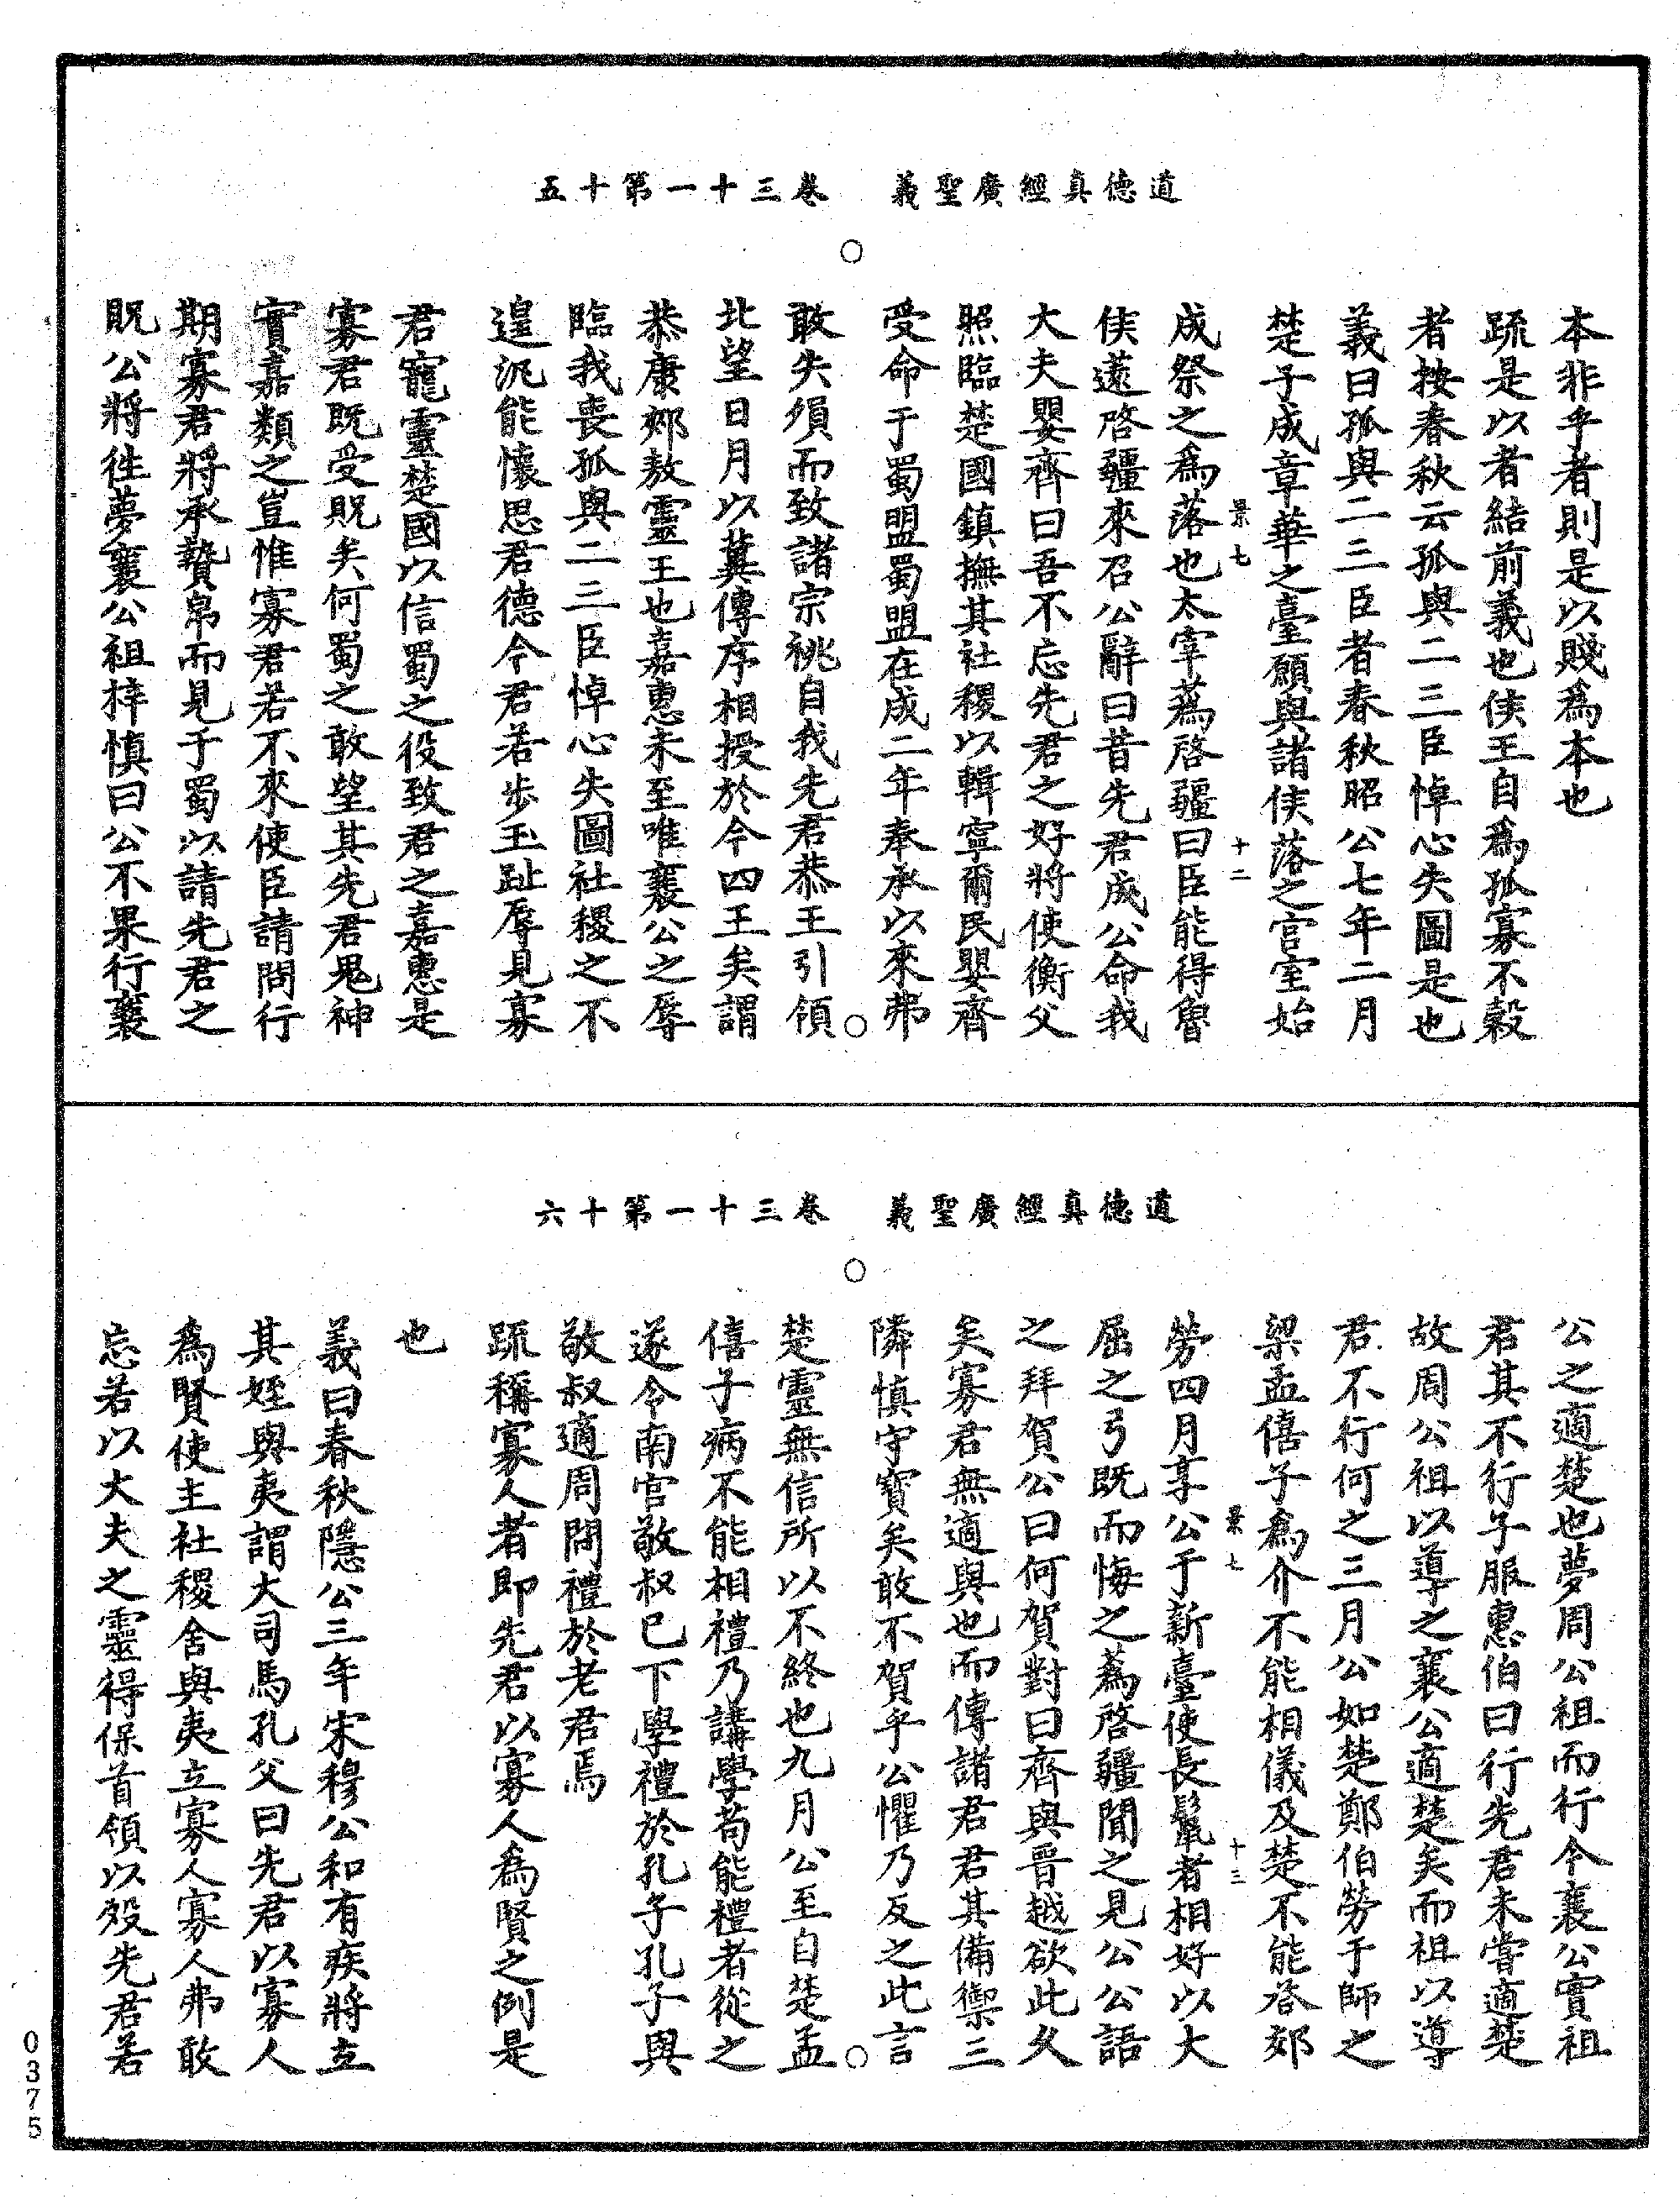 道德真經廣聖義　卷三十一第十五
本非乎者則是以賤爲本也
疏是以者結前義也侯王自爲孤寡不穀
者按春秋云孤與二三臣悼心失圖是也
義曰孤與二三臣者春秋昭公七年二月
楚子成章華之臺願與諸侯落之宮室始
景七　十二
成祭之爲落也太宰薳啓疆曰臣能得魯
侯薳啓疆來召公辭曰昔先君成公命我
大夫嬰齊曰吾不忘先君之好將使衡父
照臨楚國鎮撫其社稷以輯寧爾民嬰齊
受命于蜀盟蜀盟在成二年奉承以來弗
敢失須而致諸宗祧自我先君恭王引領
北望日月以冀傳序相授於今四王矣謂
恭康郟敖靈王也嘉惠未至唯襄公之辱
臨我喪孤與二三臣悼心失圖社稷之不
遑況能懷思君德今君若步玉趾辱見寡
君寵靈楚國以信蜀之役致君之嘉惠是
寡君既受貺矣何蜀之敢望其先君鬼神
實嘉類之豈惟寡君若不來使臣請問行
期寡君將承贄帛而見于蜀以請先君之
貺公將往夢襄公祖梓慎曰公不果行襄
道德真經廣聖義　卷三十一第十六
公之適楚也夢周公祖而行今襄公實祖
君其不行子服惠伯曰行先君未嘗適楚
故周公祖以導之襄公適楚矣而祖以導
君不行何之三月公如楚鄭伯勞于師之
梁孟僖子爲介不能相儀及楚不能答郊
景七　十三
勞四月享公于新臺使長鬣者相好以大
屈之弓既而悔之薳啓疆聞之見公公語
之拜賀公曰何賀對曰齊與晉越欲此久
矣寡君無適與也而傳諸君君其備禦三
隣慎守寶矣敢不賀乎公懼乃反之此言
楚靈無信所以不終也九月公至自楚孟
僖子病不能相禮乃講學苟能禮者從之
遂令南宮敬叔已下學禮於孔子孔子與
敬叔適周問禮於老君焉
疏稱寡人者即先君以寡人爲賢之例是
也
義曰春秋隱公三年宋穆公和有疾將立
其姪與夷謂大司馬孔父曰先君以寡人
爲賢使主社稷舍與夷立寡人寡人弗敢
忘若以大夫之靈得保首領以歿先君若
0375